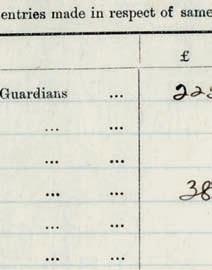 entries made in respect of same
£
Guardians ...
... ...
... ...
... ... 38
... ...
... ...